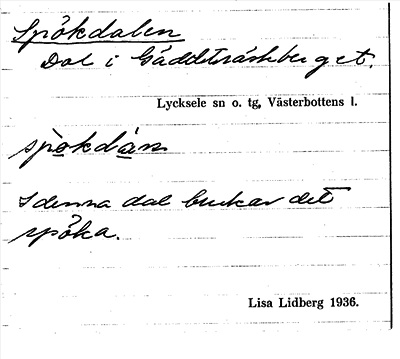 Spökdalen
Dal i Gäddträskberget.
Lycksele sn o. tg, Västerbottens l.
spò̱kda̱n
I denna dal brukar det
spöka.
Lisa Lidberg 1936.